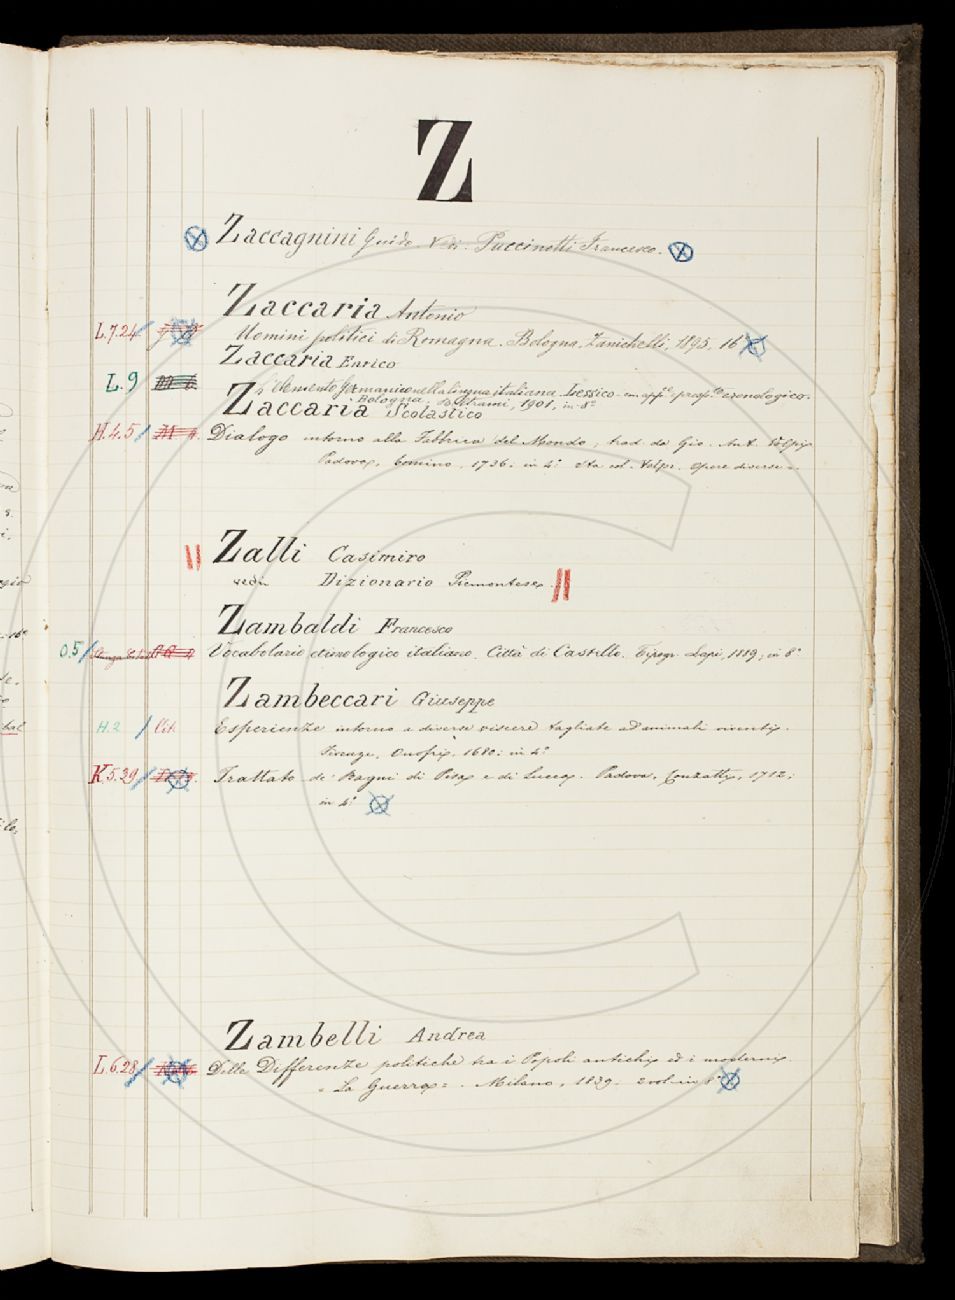 Z
Zaccagnini Guido Vedi: Puccinotti Francesco.
Zaccaria Antonio
L.7.24 Uomini politici di Romagna. Bologna, Zanichelli, 1895. 16°
Zaccaria Enrico
L.9 L'elemento germanico nella lingua italiana. Lessico con app.e e prosp.to cronologico.
Bologna. Beltrami, 1901, in-8°
Zaccaria Scolastico
H.4.5 Dialogo intorno alla Fabbrica del Mondo, trad. da Gio. Ant. Volpi
Padova, Comino, 1736: in 4° Sta col. Volpi. Opere diverse
Zalli Casimiro
vedi Dizionario Piemontese
Zambaldi Francesco
O.5 Vocabolario etimologico italiano. Città di Castello. Tipogr. Lapi, 1889; in 8°
Zambeccari Giuseppe
H.2 Esperienze intorno a diverse viscere tagliate ad animali viventi.
Firenze, Onofri. 1680: in 4°
K.5.29 Trattato de' Bagni di Pisa e di Lucca. Padova, Conzatti, 1712;
in 4°
Zambelli Andrea
L.6.28 Delle Differenze politiche tra i Popoli antichi ed i moderni
= La Guerra = . Milano, 1839. 2 vol. in 8°